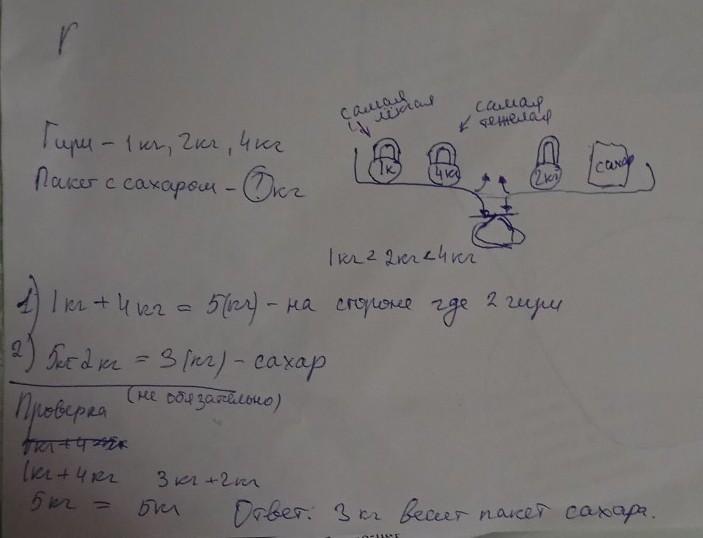 Г
самая лёгкая
самая тяжелая
Гири - 1 кг, 2 кг, 4 кг
1к 4кг 2кг сахар
Пакет с сахаром - ? кг
1кг < 2кг < 4кг
1) 1кг + 4кг = 5(кг) - на стороне где 2 гири
2) 5кг-2кг = 3(кг) - сахар
Проверка (не обязательно)
1кг + 4кг 3кг + 2кг
5кг = 5кг Ответ: 3 кг весит пакет сахара.